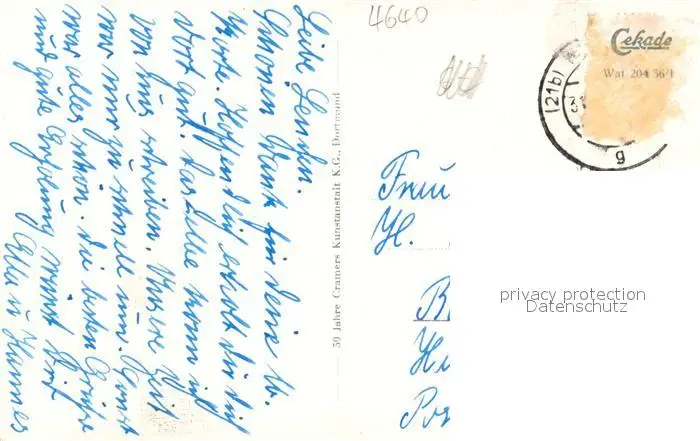 Liebe Lenchen.
Schönen Dank für deine lb.
Karte. Hoffen du erholst dich
dort gut. Dasselbe können wir
von uns schreiben. Unsere Zeit
war nur zu schnell um. Sonst
war alles schön. Die besten Grüße
und gute Erholung
Ella u Hannes
50 Jahre Cramers Kunstanstalt K.G., Dortmund
4640
Cekade
Wat 204 56/1
(21b)
g
Frau
H.
privacy protection
Datenschutz